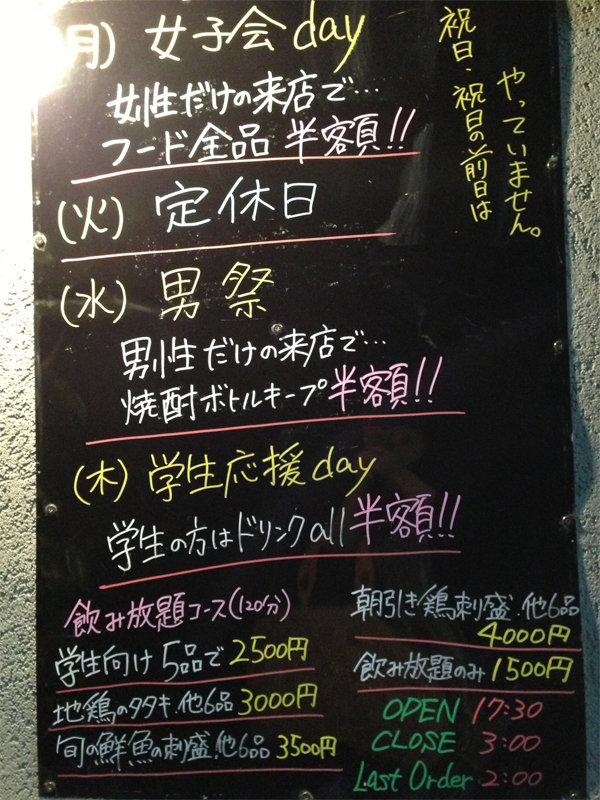 (月) 女子会day
女性だけの来店で…
フード全品 半額!!
祝日・祝日の前日は
やっていません。
(火) 定休日
(水) 男祭
男性だけの来店で…
焼酎ボトルキープ半額!!
(木) 学生応援day
学生の方はドリンクall半額!!
飲み放題コース(120分)
学生向け 5品で 2500円
地鶏のタタキ.他6品 3000円
旬の鮮魚の刺盛.他6品 3500円
朝引き鶏刺盛.他6品
4000円
飲み放題のみ 1500円
OPEN 17:30
CLOSE 3:00
Last Order 2:00